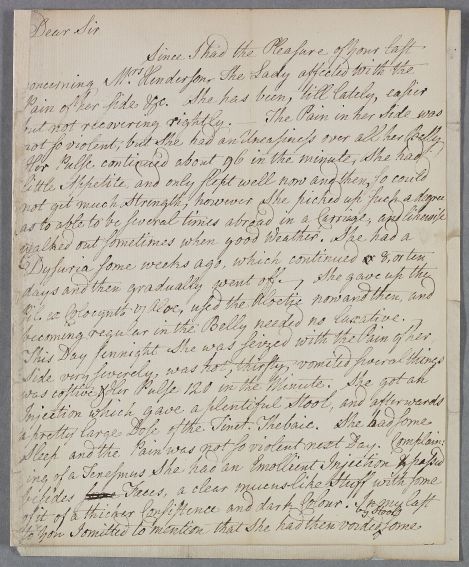 Dear Sir
Since I had the Pleasure of your last
concerning Mrs Henderson, The Lady affected with the
Pain of her side &c. She has been, till lately, easier
but not recovering rightly. The Pain in her Side was
not so violent; but She had an Uneasiness over all her Belly
Her Pulse continued about 96 in the minute, She had
little Appetite, and only slept well now and then, so could
not get much Strength, however She picked up such a degree
as to able to be several times abroad in a Carriage, and likewise
walked out sometimes when good Weather. She had a
Dysuria some weeks ago, which continued 8, or ten
days and then gradually went off. She gave up the
Pil. ex Colocynth c Aloe, used the Aloetic now and then, and
becoming regular in the Belly needed no Laxative.
This Day sennight She was seyzed with the Pain of her
Side very severely, was hot, thirsty, vomited several things
was costive & Her Pulse 120 in the Minute. She got an
Injection which gave a plentiful Stool, and afterwards
a pretty large Dose of the Tinct. Thebaic. She had some
Sleep and the Pain was not so violent next Day. Complain:
ing of a Tenesmus She had an Emollient Injection & passed
besides Faeces, a clear mucus-like Stuff with some
of it of a thicker Consistence and dark Colour. In my last
to you I omitted to mention that She had then voided by Stool some